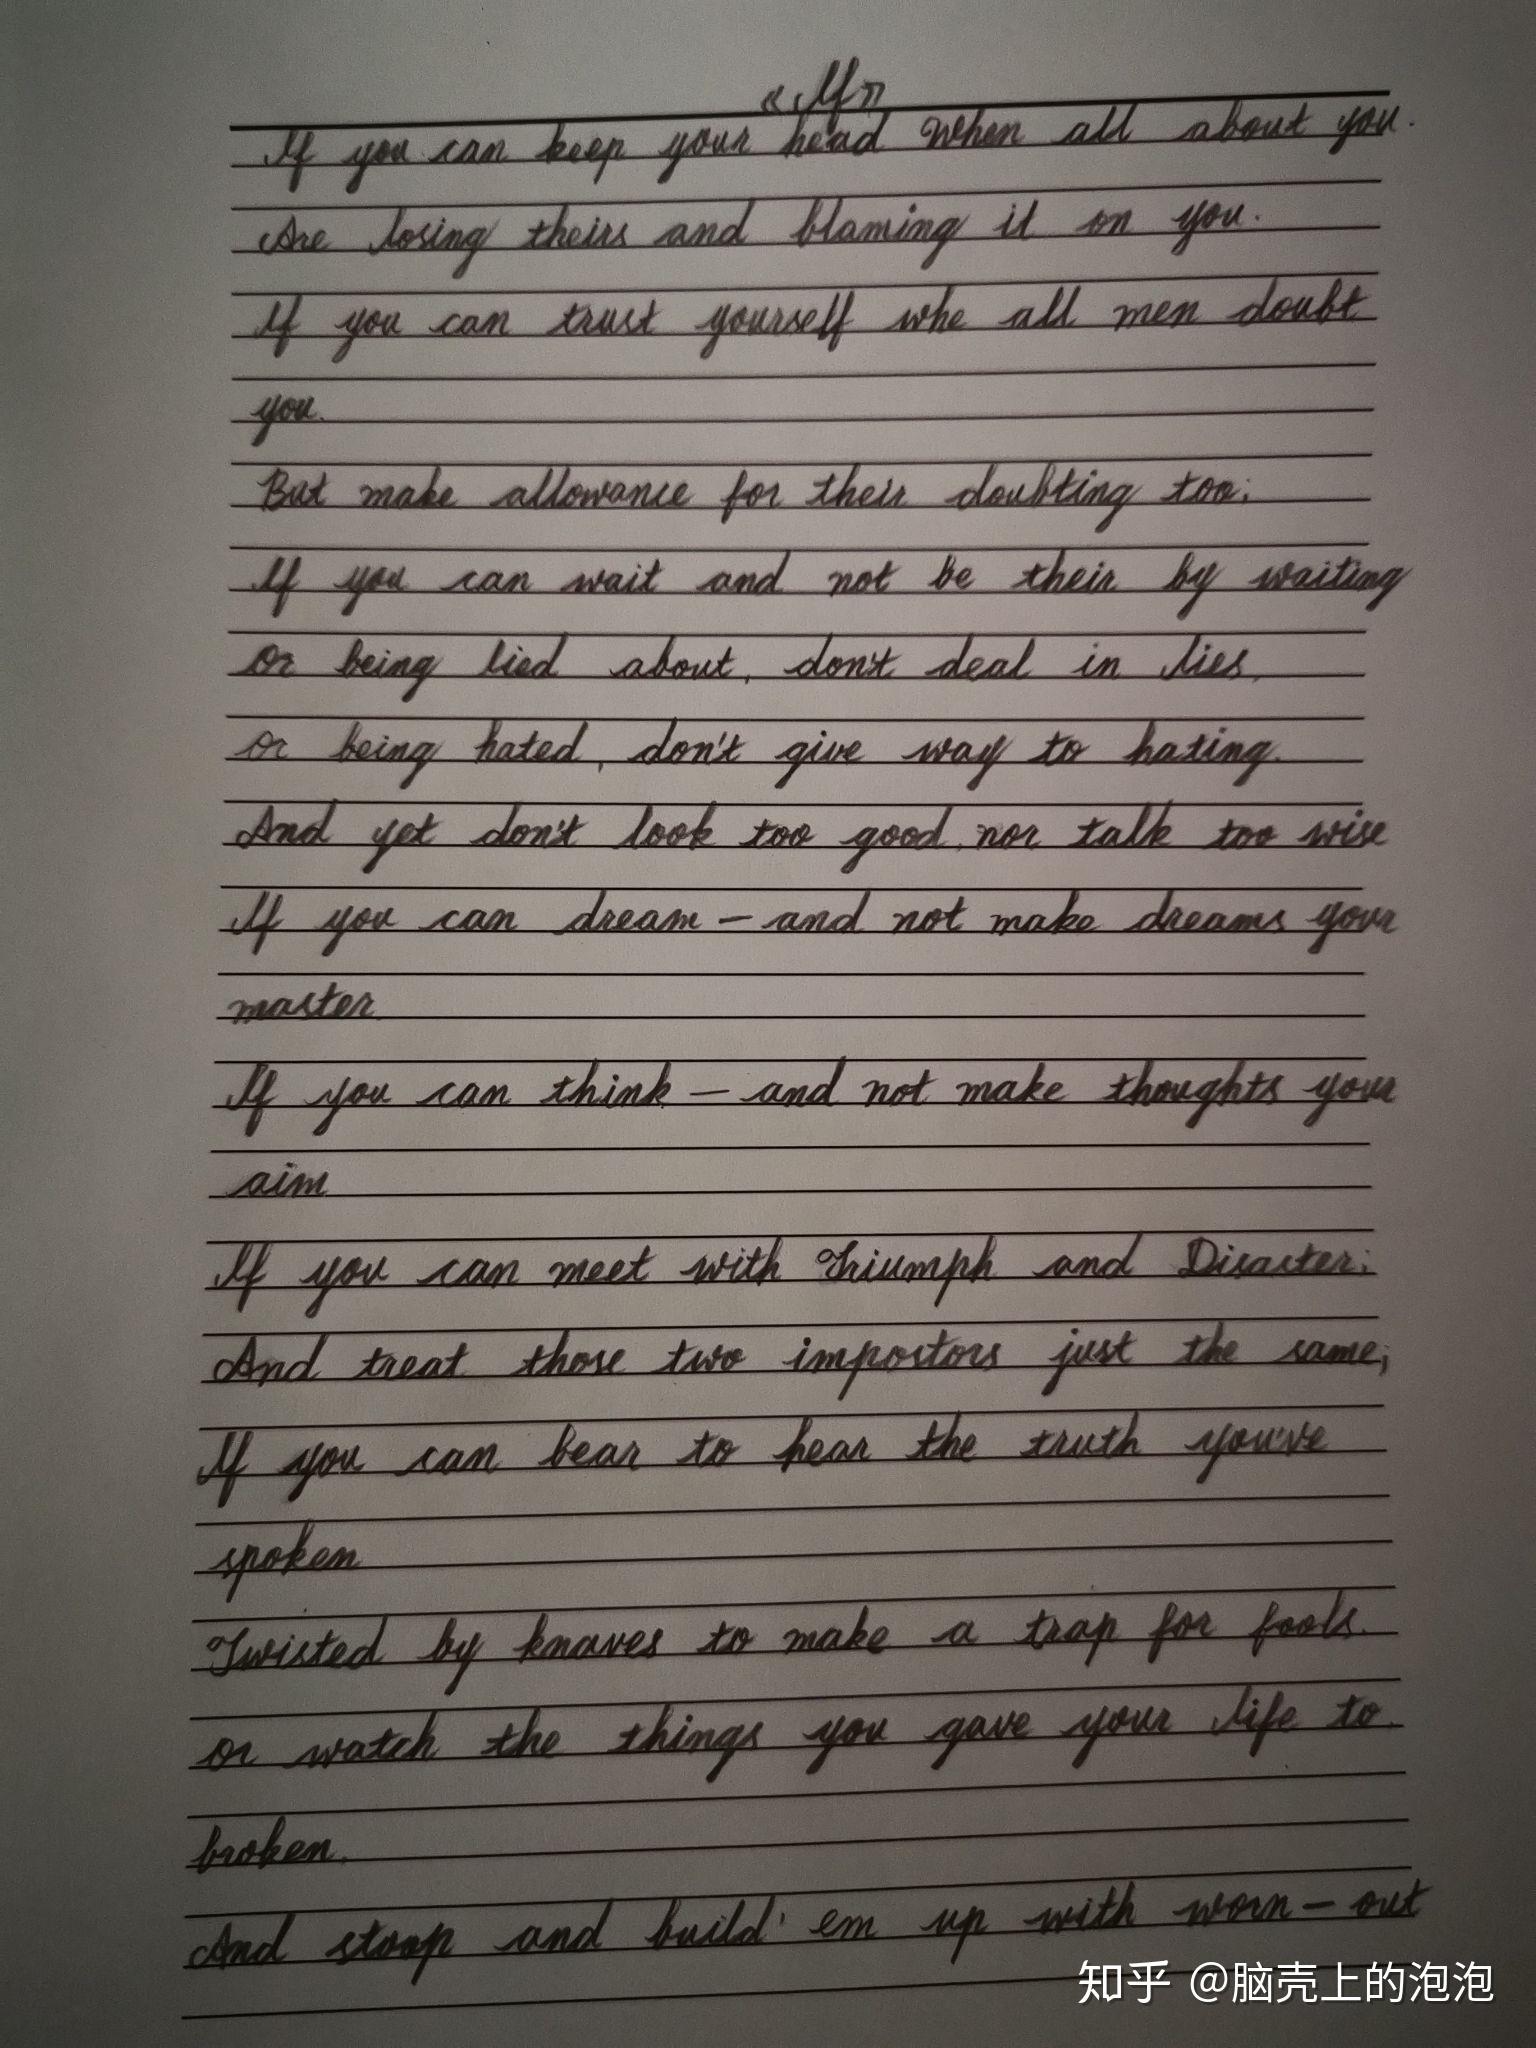 《If》
If you can keep your head When all about you.
Are losing theirs and blaming it on you.
If you can trust yourself whe all men doubt
you.
But make allowance for their doubting too;
If you can wait and not be their by waiting
Or being lied about, don't deal in lies.
Or being hated, don't give way to hating.
And yet don't look too good, nor talk too wise
If you can dream — and not make dreams your
master.
If you can think — and not make thoughts your
aim
If you can meet with Triumph and Disaster;
And treat those two impostors just the same;
If you can bear to hear the truth you've
spoken
Twisted by knaves to make a trap for fools.
or watch the things you gave your life to.
broken.
And stoop and build 'em up with worn-out
知乎 @脑壳上的泡泡